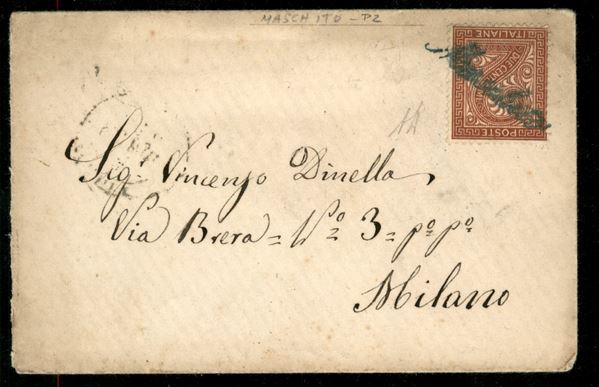 MASCHITO - PZ
POSTE
ITALIANE
DUE CENT
Sig Vincenzo Dinella
Via Brera = No 3 = po po
Milano